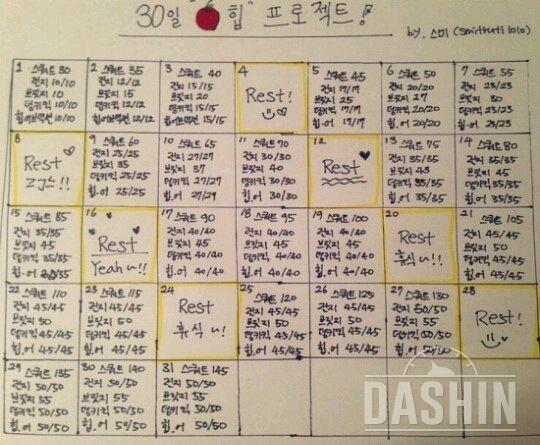 30일 힙" 프로젝트!
by. 스미 (Smitruti lolo)
1 스쿼트 30
런지 10/10
브릿지 10
덩키킥 10/10
힙어브덕션 10/10
2 스쿼트 35
런지 12/12
브릿지 15
덩키킥 12/12
힙어브덕션 12/12
3 스쿼트 40
런지 15/15
브릿지 20
덩키킥 15/15
힙.어 15/15
4
Rest!
5 스쿼트 45
런지 17/17
브릿지 25
덩키킥 17/17
힙.어 17/17
6 스쿼트 50
런지 20/20
브릿지 27
덩키킥 20/20
힙.어 20/20
7 스쿼트 55
런지 23/23
브릿지 30
덩키킥 23/23
힙.어 23/23
8
Rest
굿!!
9 스쿼트 60
런지 25/25
브릿지 35
덩키킥 25/25
힙.어 25/25
10 스쿼트 65
런지 27/27
브릿지 37
덩키킥 27/27
힙.어 27/29
11 스쿼트 70
런지 30/30
브릿지 40
덩키킥 30/30
힙.어 30/30
12
Rest
13 스쿼트 75
런지 35/35
브릿지 45
덩키킥 35/35
힙.어 35/35
14 스쿼트 80
런지 35/35
브릿지 45
덩키킥 35/35
힙.어 35/35
15 스쿼트 85
런지 35/35
브릿지 45
덩키킥 35/35
힙.어 35/35
16
Rest
Yeah~!!
17 스쿼트 90
런지 40/40
브릿지 45
덩키킥 40/40
힙.어 40/40
18 스쿼트 95
런지 40/40
브릿지 45
덩키킥 40/40
힙.어 40/40
19 스쿼트 100
런지 40/40
브릿지 45
덩키킥 40/40
힙.어 40/40
20
Rest
휴식~!!
21 스쿼트 105
런지 45/45
브릿지 50
덩키킥 45/45
힙.어 45/45
22 스쿼트 110
런지 45/45
브릿지 50
덩키킥 45/45
힙.어 45/45
23 스쿼트 115
런지 45/45
브릿지 50
덩키킥 45/45
힙.어 45/45
24
Rest
휴식~!
25 스쿼트 120
런지 45/45
브릿지 55
덩키킥 45/45
힙.어 45/45
26 스쿼트 125
런지 45/45
브릿지 55
덩키킥 45/45
힙.어 45/45
27 스쿼트 130
런지 50/50
브릿지 55
덩키킥 50/50
힙.어 50/50
28
Rest!
29 스쿼트 135
런지 50/50
브릿지 55
덩키킥 50/50
힙.어 50/50
30 스쿼트 140
런지 50/50
브릿지 55
덩키킥 50/50
힙.어 50/50
31 스쿼트 145
런지 50/50
브릿지 55
덩키킥 50/50
힙.어 50/50
DASHIN